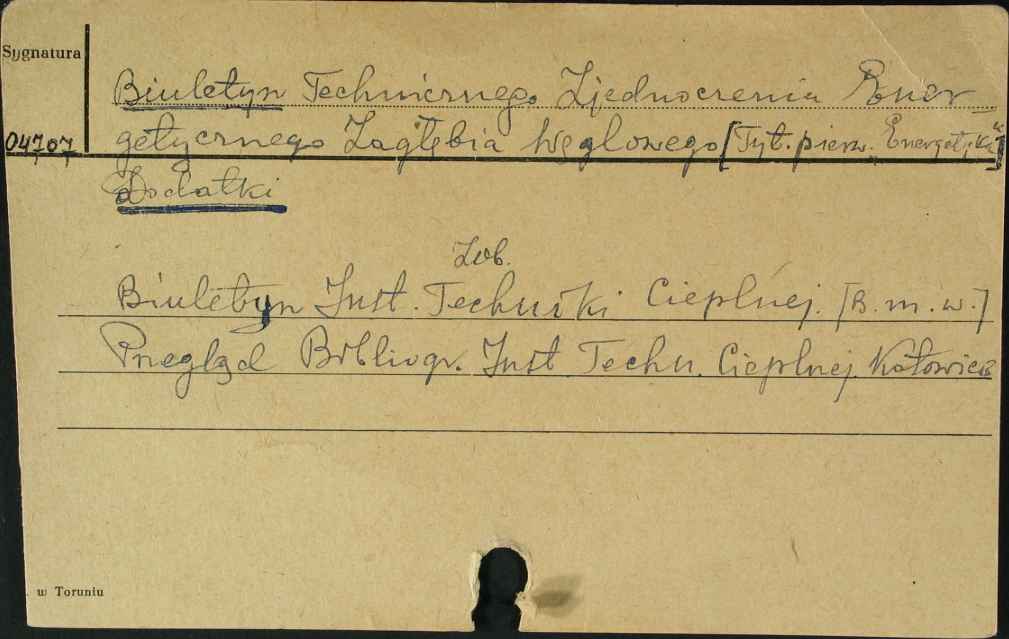 Sygnatura
Biuletyn Technicznego Zjednoczenia Ener-
04707 getycznego Zagłębia Węglowego [Tyt. pierw. Energetyka"]
Dodatki
Zob.
Biuletyn Inst. Techniki Cieplnej. [B. m. w.]
Przegląd Bibliogr. Inst Techn. Cieplnej Katowice
w Toruniu